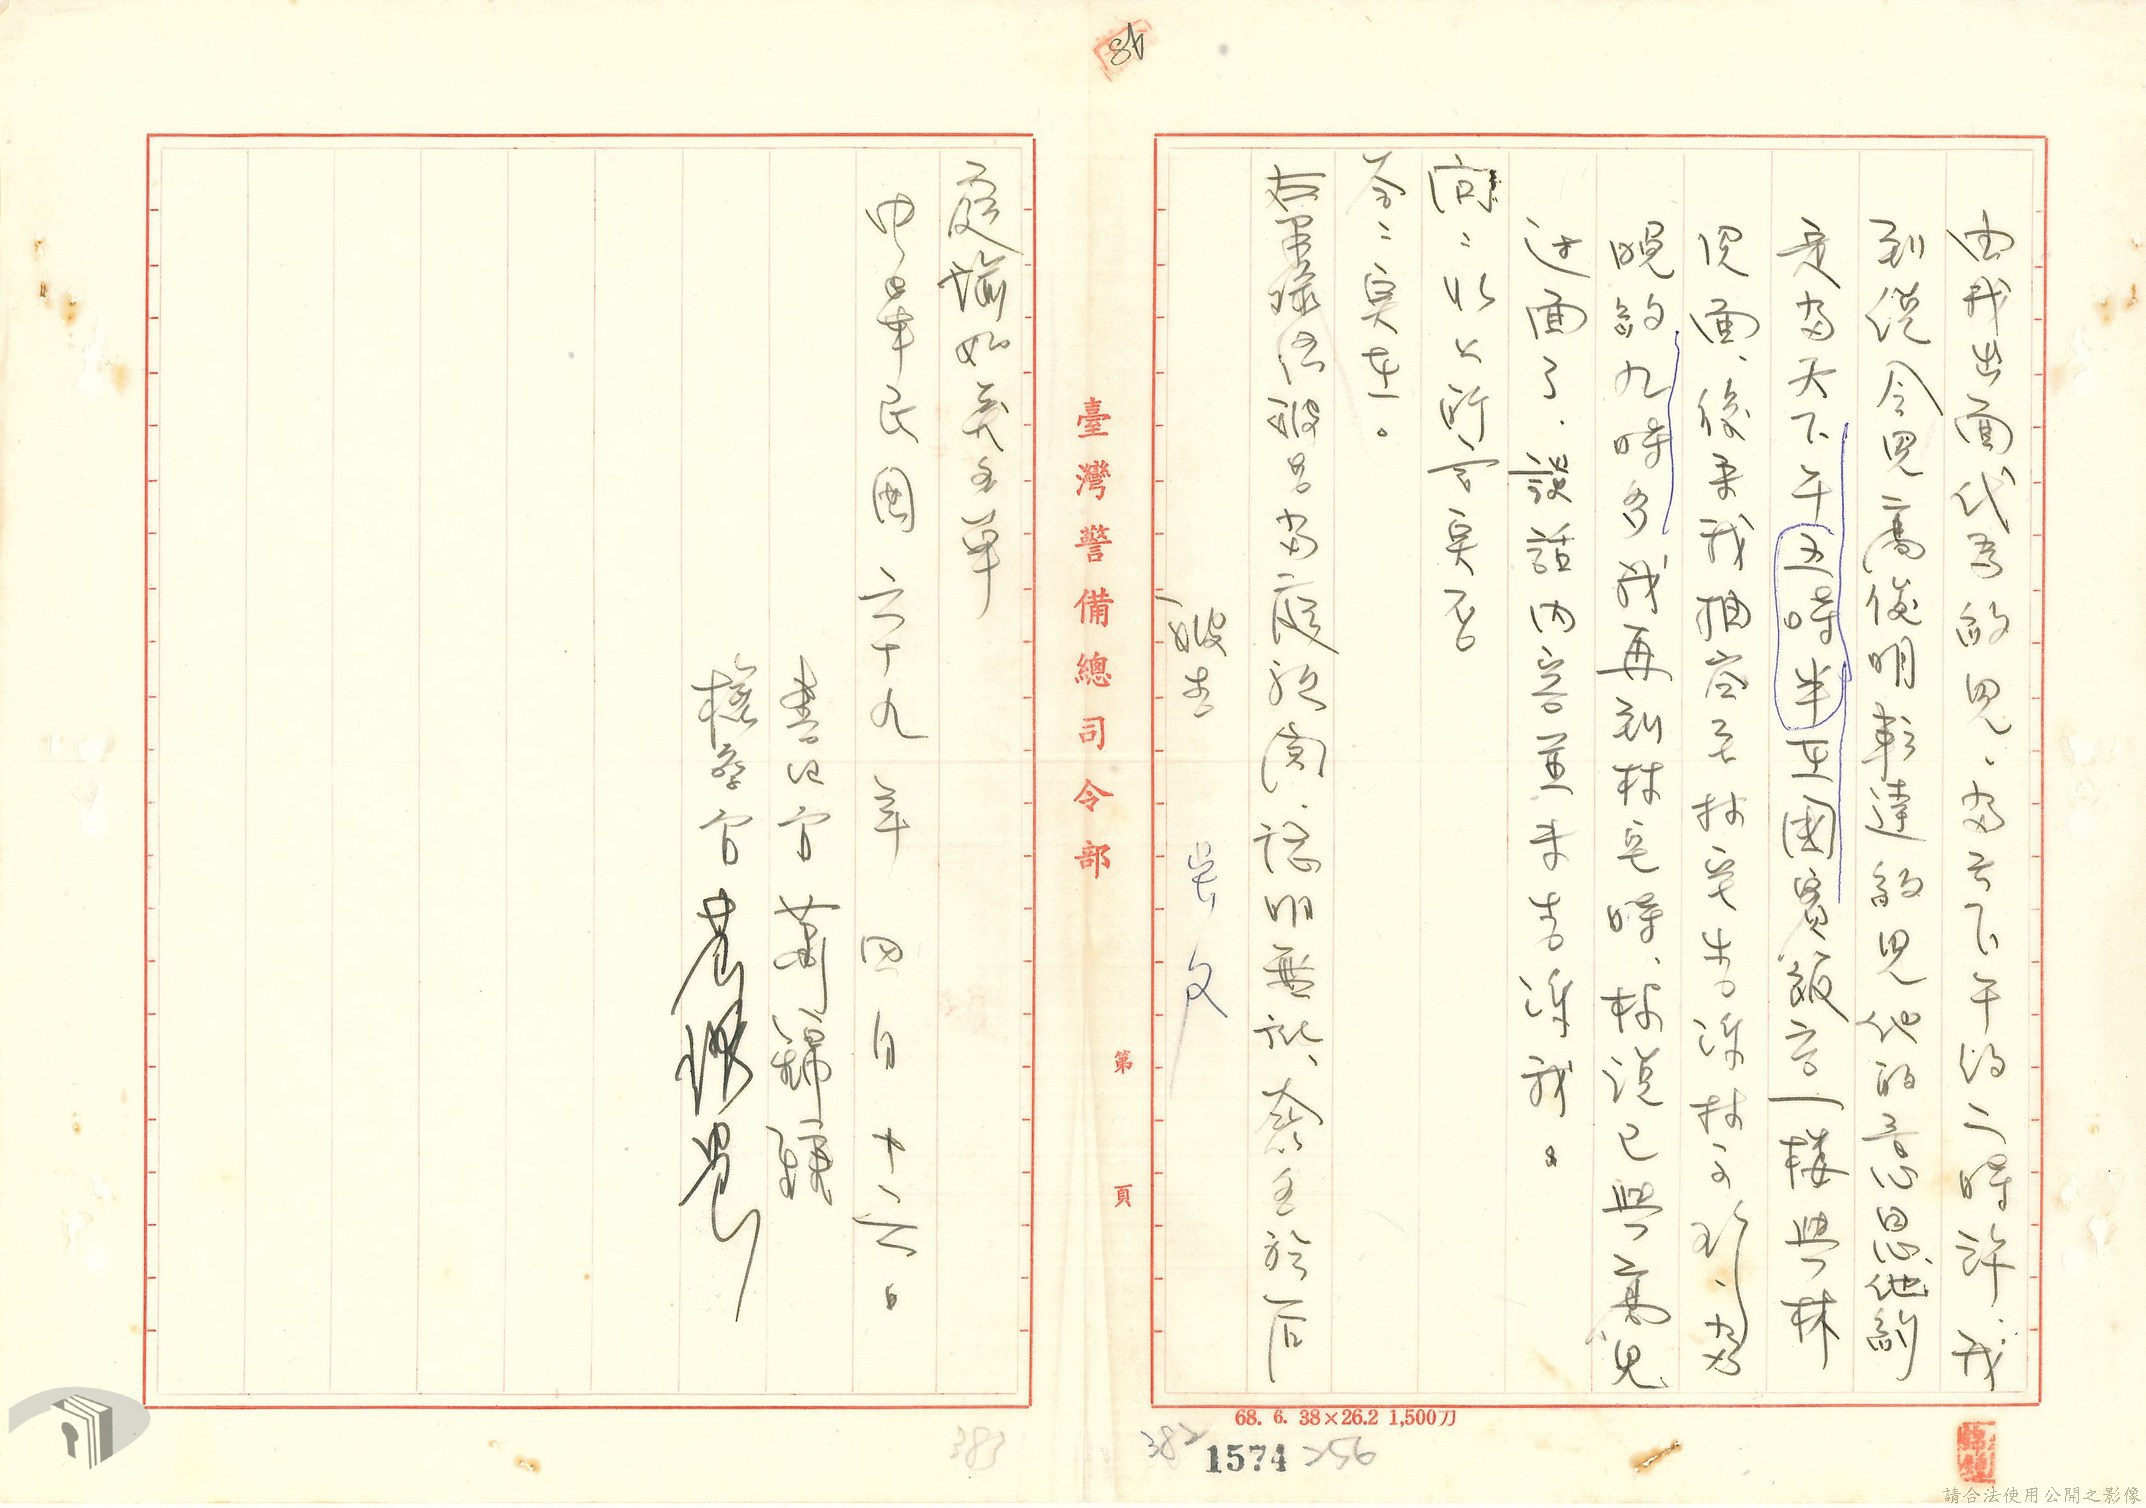 由我出面代為約見。當天下午約二時許，我
到從今見高俊明轉達約見他的意思，他約
定當天下午五時半在國賓飯店一樓與林
見面，後來我抽空至林宅告訴林文珍，當
晚約九時多我再到林宅時，林說已與高見
過面了，談話內容並未告訴我。
問：以上所言實否
答：實在。
右筆錄經被告當庭親閱，認明無訛，簽名於后
被告 吳文
庭諭如文右單
中華民國六十九年四月十六日
書記官 蕭錦鍾
檢察官
臺灣警備總司令部
第 頁
68. 6. 38×26.2 1,500刀
382 1574 256
383
86
請合法使用公開之影像